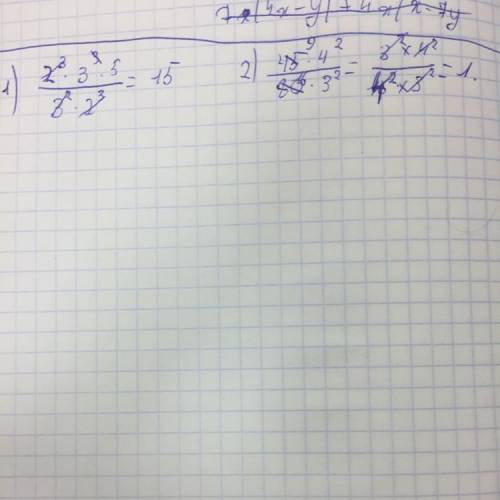 7x(4x-y)-4x(x-7y
1) (2³·3³·5)/(3²·2³) = 15 2) (45⁹·4²)/(80·3²) = (3²×4²)/(4²×3²) = 1.